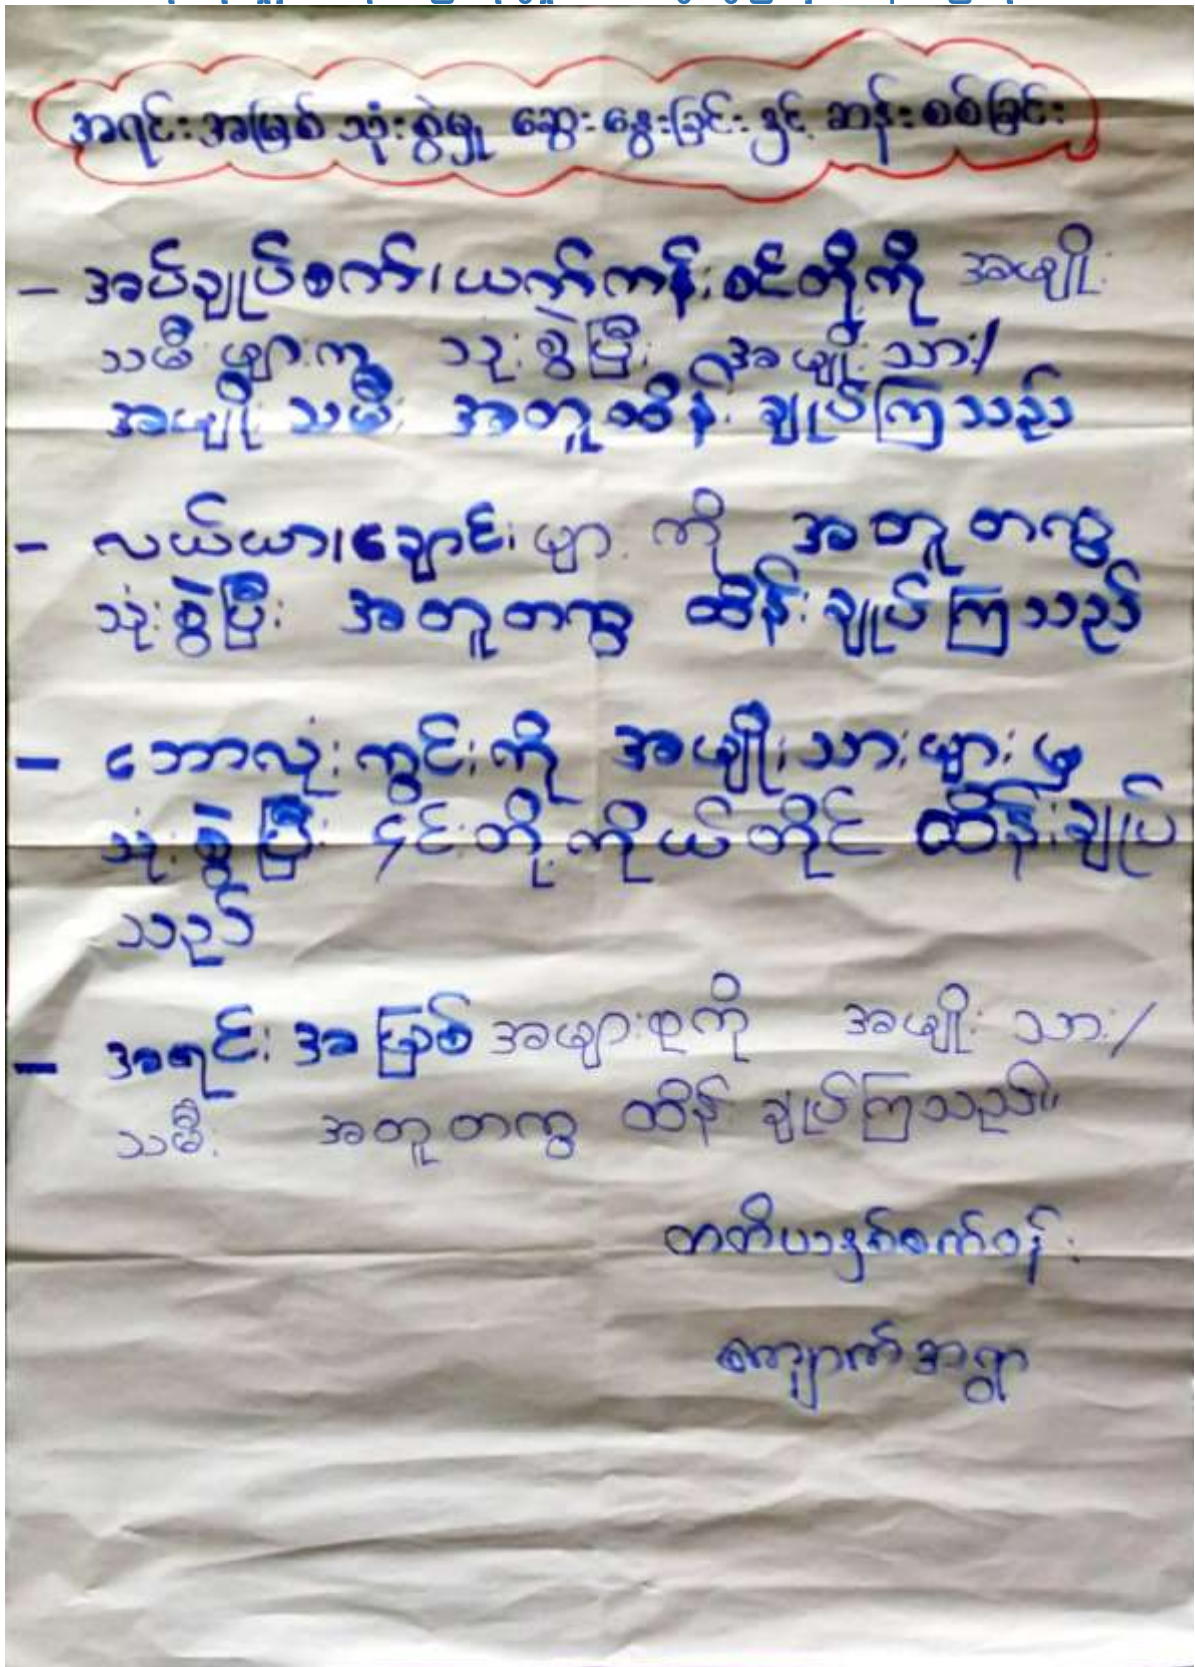 အရင်းအမြစ် သုံးစွဲမှု ဆွေးနွေးခြင်း နှင့် ဆန်းစစ်ခြင်း
- အပ်ချုပ်စက်၊ ယက်ကန်းစင်တို့ကို အမျိုး
သမီးများက သုံးစွဲပြီး အမျိုးသား/
အမျိုးသမီး အတူထိန်းချုပ်ကြသည်
- လယ်ယာ၊ ချောင်းများကို အတူတကွ
သုံးစွဲပြီး အတူတကွ ထိန်းချုပ်ကြသည်
- ဘောလုံးကွင်းကို အမျိုးသားများမှ
သုံးစွဲပြီး ၄င်းတို့ကိုယ်တိုင် ထိန်းချုပ်
သည်
- အရင်းအမြစ်အများစုကို အမျိုးသား/
သမီး အတူတကွ ထိန်းချုပ်ကြသည်။
တတိယနှစ်စက်ဝန်း
ကျောက်အရွာ